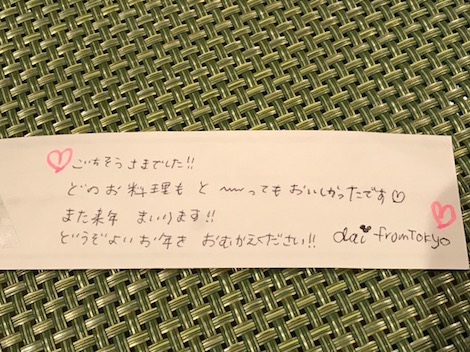 ごちそうさまでした!!
どのお料理も と〜〜ってもおいしかったです♡
また来年 まいります!!
どうぞよいお年を おむかえください!! dai fromTOKYO